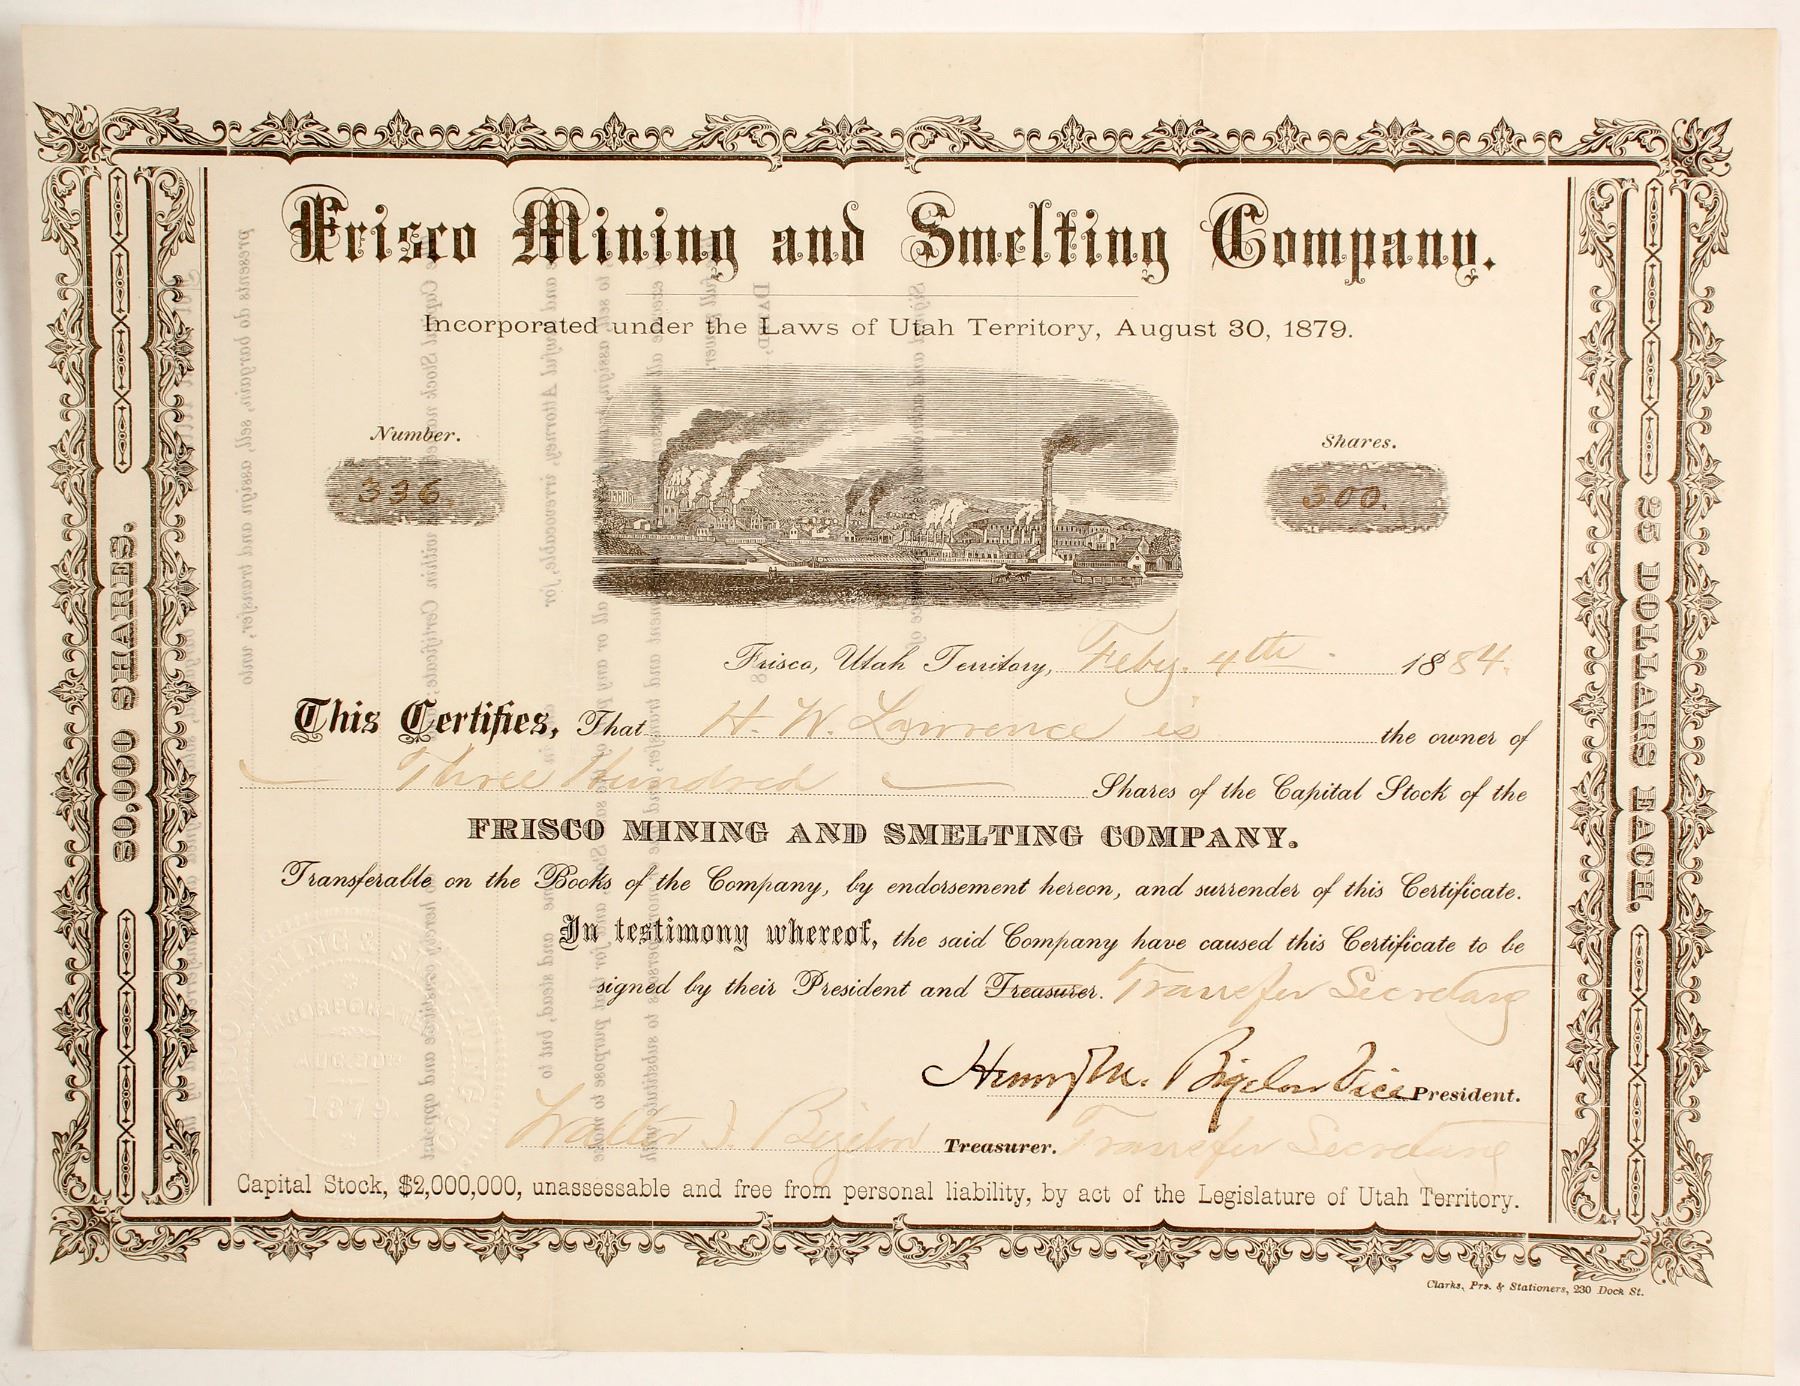 Frisco Mining and Smelting Company.
Incorporated under the Laws of Utah Territory, August 30, 1879.
Number.
336.
Shares.
300.
80,000 SHARES.
25 DOLLARS EACH.
Frisco, Utah Territory, Feby. 4th 1884.
This Certifies, That H. W. Lawrence is the owner of
Three Hundred Shares of the Capital Stock of the
FRISCO MINING AND SMELTING COMPANY.
Transferable on the Books of the Company, by endorsement hereon, and surrender of this Certificate.
In testimony whereof, the said Company have caused this Certificate to be
signed by their President and Treasurer. Transfer Secretary
Henry M. Bigelow Vice President.
Walter I. Bigelow Treasurer. Transfer Secretary
INCORPORATED
AUG. 30TH
1879.
Capital Stock, $2,000,000, unassessable and free from personal liability, by act of the Legislature of Utah Territory.
Clarks, Prs. & Stationers, 230 Dock St.